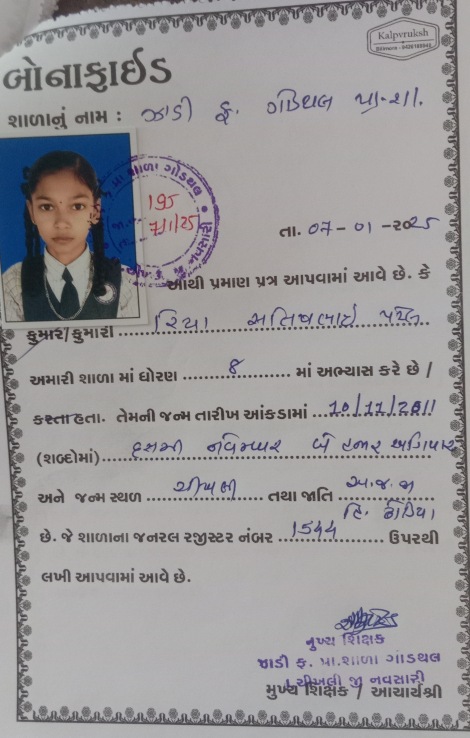 Kalpvruksh
બોનાફાઈડ
શાળાનું નામ : ઝાડી ફ. ગોડથલ પ્રા.શા.
પ્રા શાળા ગોડથલ
નવસારી
195
7/1/25
તા. 07 - 01 - 2025
આથી પ્રમાણ પત્ર આપવામાં આવે છે. કે
કુમાર/કુમારી રિયા સતિષભાઈ પટેલ
અમારી શાળા માં ધોરણ 8 માં અભ્યાસ કરે છે /
કરતા હતા. તેમની જન્મ તારીખ આંકડામાં 10/11/2011
(શબ્દોમાં) દસમી નવેમ્બર બે હજાર અગિયાર
અને જન્મ સ્થળ ચીખલી તથા જાતિ અ.જ.જા
હિ. ઢોડિયા
છે. જે શાળાના જનરલ રજીસ્ટર નંબર 1544 ઉપરથી
લખી આપવામાં આવે છે.
મુખ્ય શિક્ષક
ઝાડી ફ. પ્રા.શાળા ગોડથલ
તા.ચીખલી જી નવસારી
મુખ્ય શિક્ષક / આચાર્યશ્રી